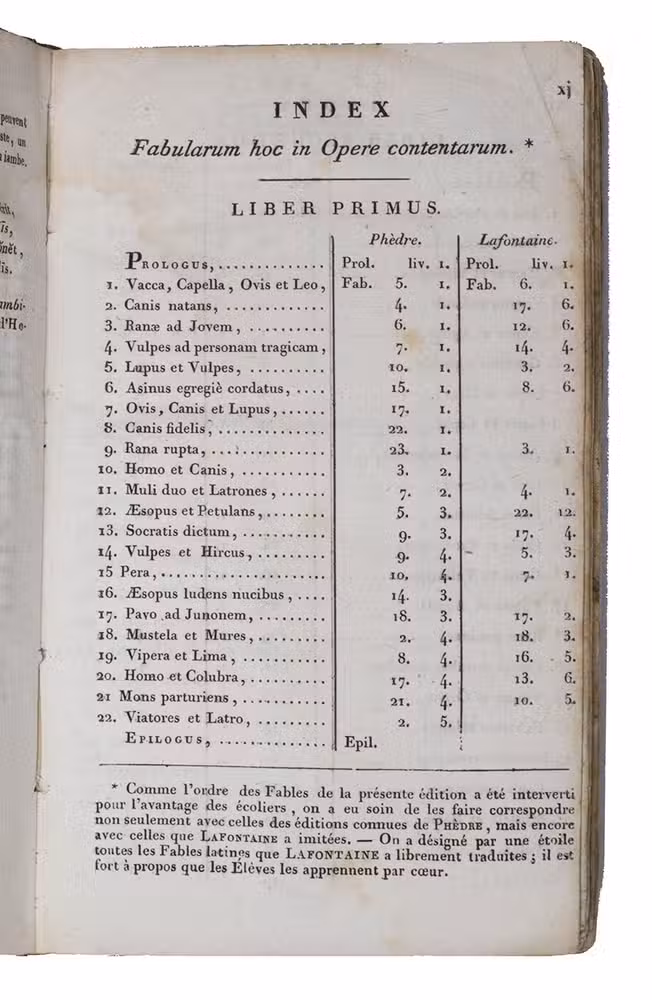 peuvent
un
iambe.
xj
INDEX
Fabularum hoc in Opere contentarum. *
LIBER PRIMUS.
Phèdre. Lafontaine.
PROLOGUS, .............. Prol. liv. 1. Prol. liv. 1.
1. Vacca, Capella, Ovis et Leo, Fab. 5. 1. Fab. 6. 1.
2. Canis natans, ............. 4. 1. 17. 6.
3. Ranæ ad Jovem, .......... 6. 1. 12. 6.
4. Vulpes ad personam tragicam, 7. 1. 14. 4.
5. Lupus et Vulpes, .......... 10. 1. 3. 2.
6. Asinus egregiè cordatus, .... 15. 1. 8. 6.
7. Ovis, Canis et Lupus, ...... 17. 1.
8. Canis fidelis, .............. 22. 1.
9. Rana rupta, .............. 23. 1. 3. 1.
10. Homo et Canis, ........... 3. 2.
11. Muli duo et Latrones, ...... 7. 2. 4. 1.
12. Æsopus et Petulans, ........ 5. 3. 22. 12.
13. Socratis dictum, ........... 9. 3. 17. 4.
14. Vulpes et Hircus, ......... 9. 4. 5. 3.
15 Pera, ..................... 10. 4. 7. 1.
16. Æsopus ludens nucibus, .... 14. 3.
17. Pavo ad Junonem, ......... 18. 3. 17. 2.
18. Mustela et Mures, ......... 2. 4. 18. 3.
19. Vipera et Lima, .......... 8. 4. 16. 5.
20. Homo et Colubra, ......... 17. 4. 13. 6.
21 Mons parturiens, .......... 21. 4. 10. 5.
22. Viatores et Latro, ......... 2. 5.
EPILOGUS, .............. Epil.
* Comme l'ordre des Fables de la présente édition a été interverti
pour l'avantage des écoliers, on a eu soin de les faire correspondre
non seulement avec celles des éditions connues de PHÈDRE, mais encore
avec celles que LAFONTAINE a imitées. — On a désigné par une étoile
toutes les Fables latines que LAFONTAINE a librement traduites; il est
fort à propos que les Élèves les apprennent par cœur.